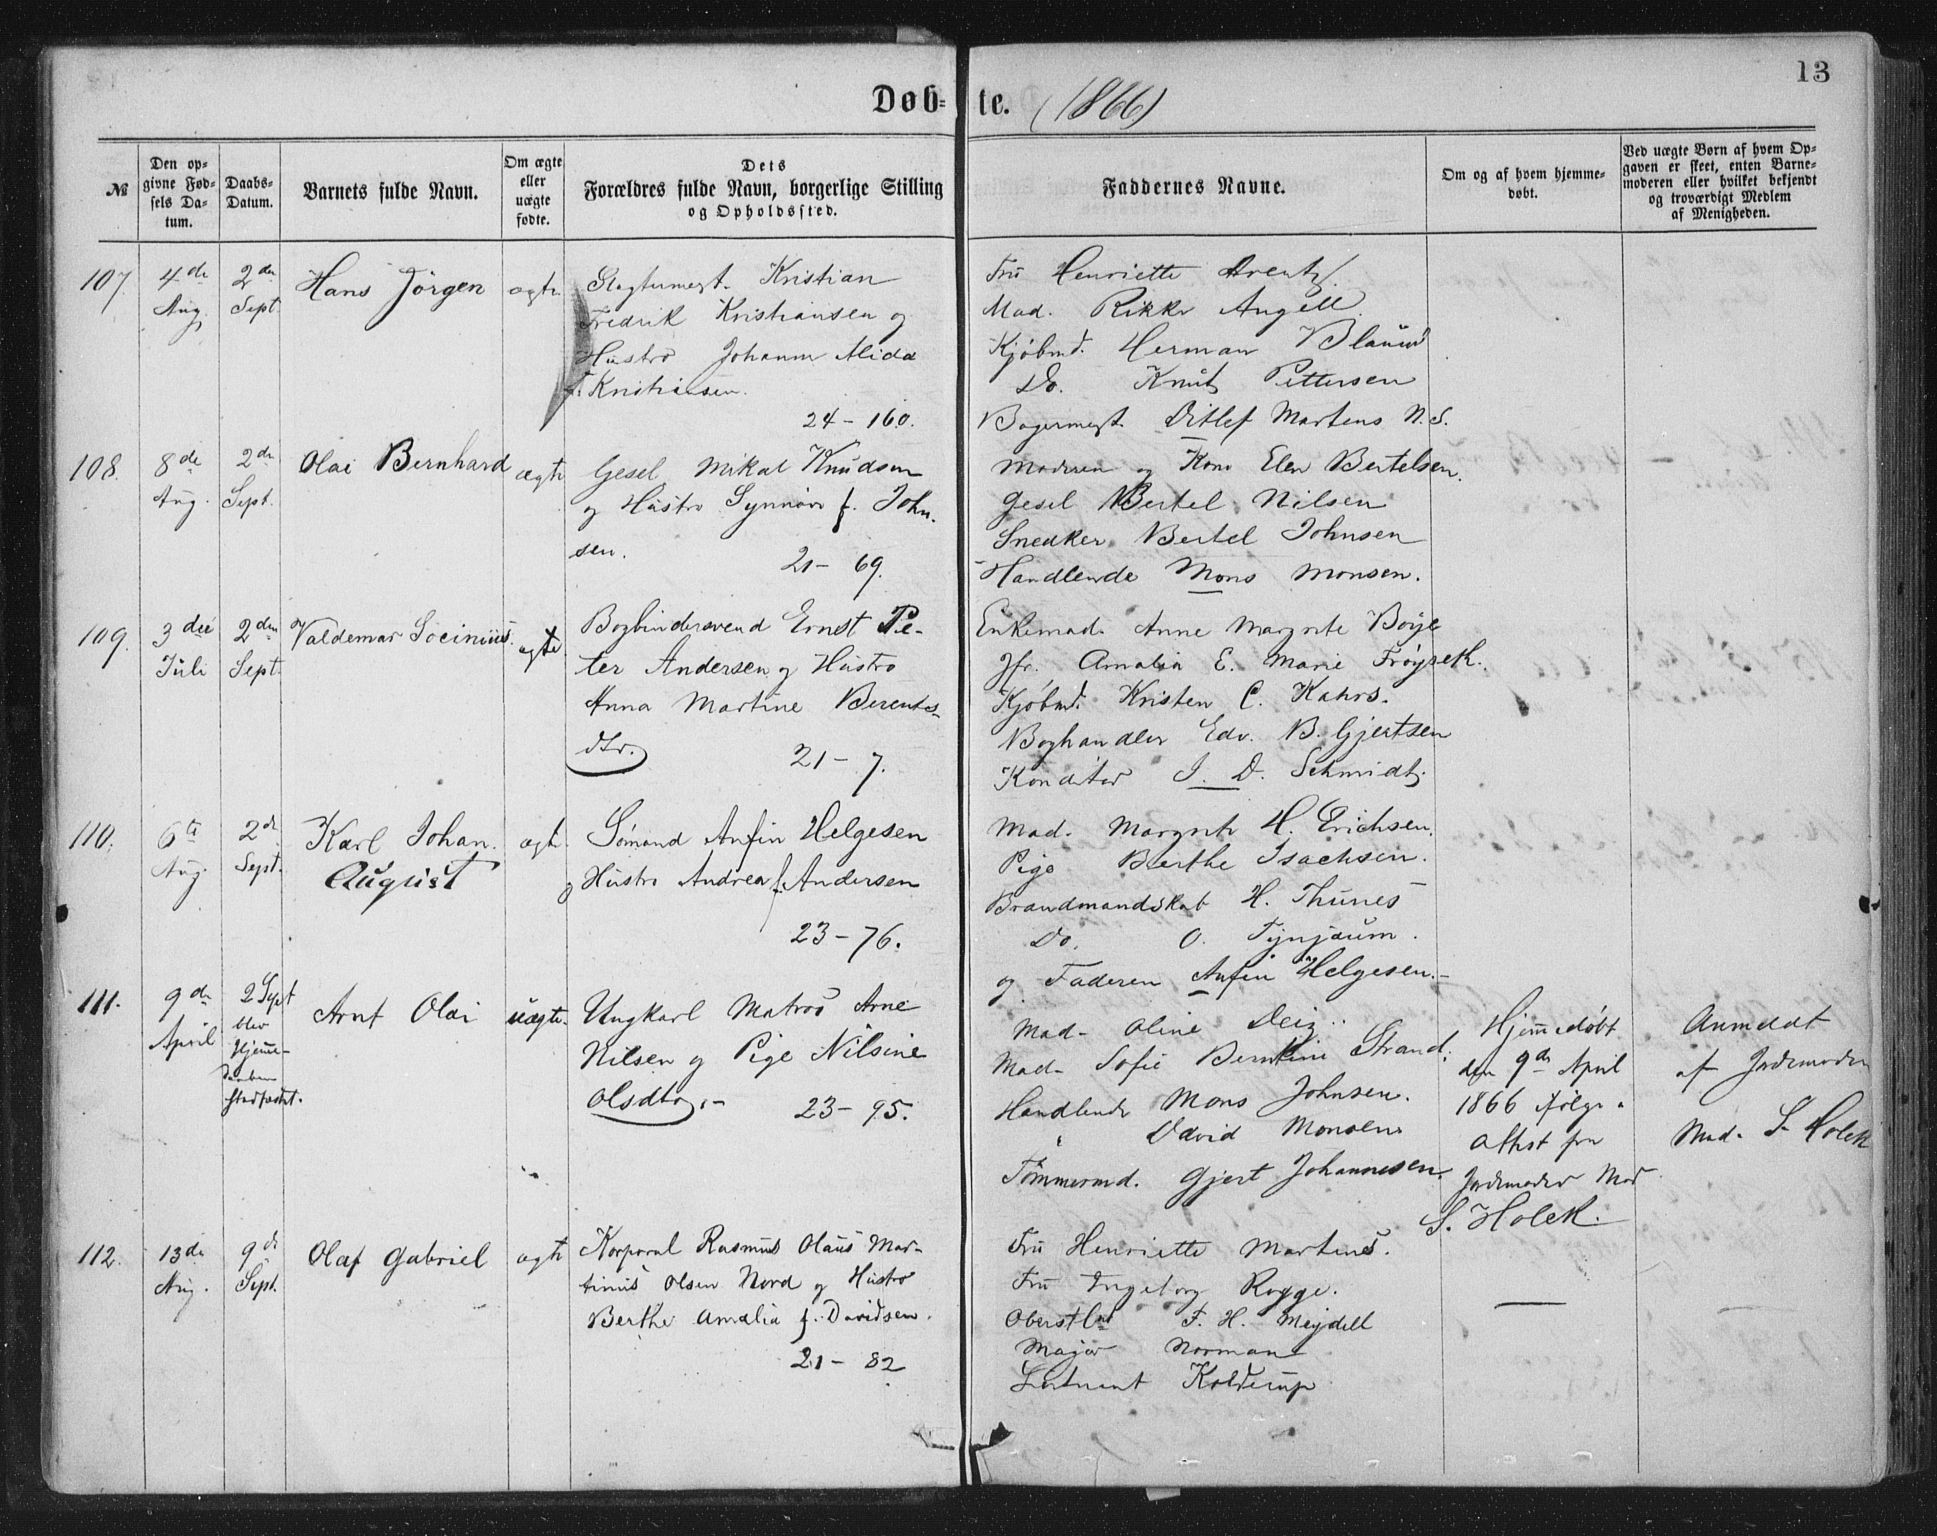 13
Døb- te. (1866)
№
Den op-
givne Fød-
sels Da-
tum.
Daabs-
Datum.
Barnets fulde Navn.
Om ægte
eller
uægte
fødte.
Dets
Forældres fulde Navn, borgerlige Stilling
og Opholdssted.
Faddernes Navne.
Om og af hvem hjemme-
døbt.
Ved uægte Børn af hvem Op-
gaven er skeet, enten Barne-
moderen eller hvilket bekjendt
og troværdigt Medlem
af Menigheden.
107.
4de
Aug.
2den
Sept.
Hans Jörgen
ægte
Slagtermest. Kristian
Fredrik Kristiansen og
Hustro Johanne Alida
f. Kristiansen.
24 - 160.
Fru Henriette Arentz
Mad. Rikke Angell
Kjöbmd. Herman Blauuw
Do. Knut Pettersen
Bagermest. Ditlef Martens N. S.
108.
8de
Aug.
2den
Sept.
Olai Bernhard
ægte
Gesel Mikal Knudsen
og Hustro Synnöve f. John-
sen.
21 - 69.
Moderen og Kone Elen Bertelsen.
Gesel Bertel Nilsen
Snedker Bertel Johnsen
Handlende Mons Monsen.
109.
3die
Juli
2den
Sept.
Valdemar Socinius
ægte
Bogbindersvend Ernst Pe-
ter Andersen og Hustro
Anna Martine Berents-
dtr.
21 - 7.
Enkemad. Anne Margrete Böije
Jfr. Amalia E. Marie Fröyseth.
Kjöbmd. Kristen C. Kahrs.
Boghandler Edv. B. Gjertsen
Konditor J. D. Schmidt.
110.
6te
Aug.
2de
Sept.
Karl Johan
August
ægte
Sömand Anfin Helgesen
og Hustro Andrea f. Andersen
23 - 76.
Mad. Margrete H. Erichsen.
Pige Berthe Isachsen.
Brandmandskab H. Thunes
Do. O. Tynjaum.
og Faderen Anfin Helgesen.-
111.
9de
April
2 Sept
blev
Hjemme-
daaben
stadfæstet.
Arnt Olai
uægte.
Ungkarl Matros Arne
Nilsen og Pige Nilsine
Olsdtr.-
23 - 95.
Mad. Oline Deiz.
Mad. Sofie Berntine Strand.
Handlende Mons Johnsen.
David Monsen
Tömmermd. Gjert Johannesen.
Hjemmedöbt
den 9de April
1866 ifölge
Attest fra
Jordemoder Mad.
S. Holck.
Anmeldt
af Jordemoder
Mad. S. Holck
112.
13de
Aug.
9de
Sept.
Olaf Gabriel
ægte
Korporal Rasmus Olaus Mar-
tinus Olsen Nord og Hustro
Berthe Amalia f. Davidsen.
21 - 82
Fru Henriette Martens.
Fru Ingeborg Rogge.
Oberstlt. F. H. Meydell
Major Norman
Lieutnant Kolderup